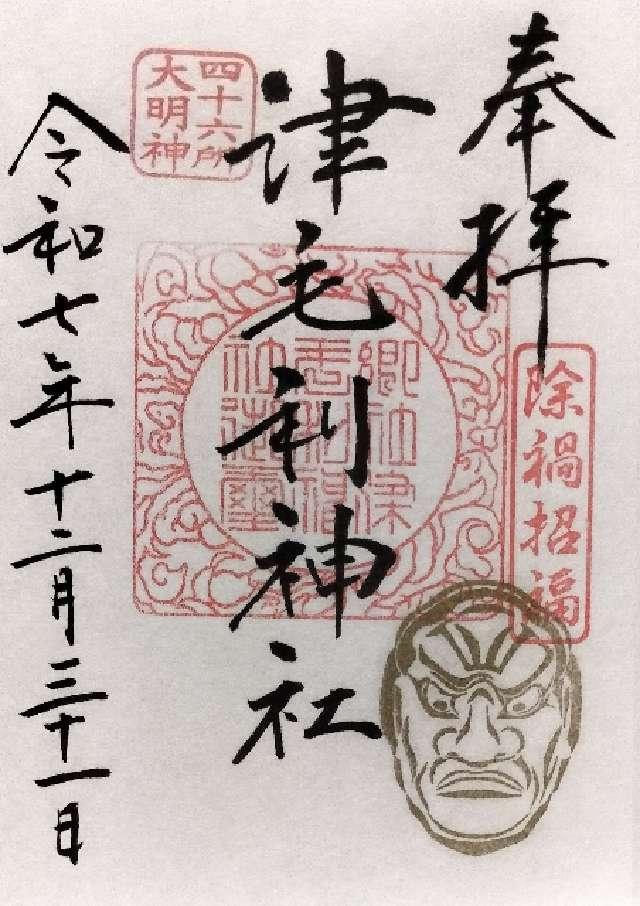 奉拝
除禍招福
津毛利神社
四十六所
大明神
令和七年十二月三十一日